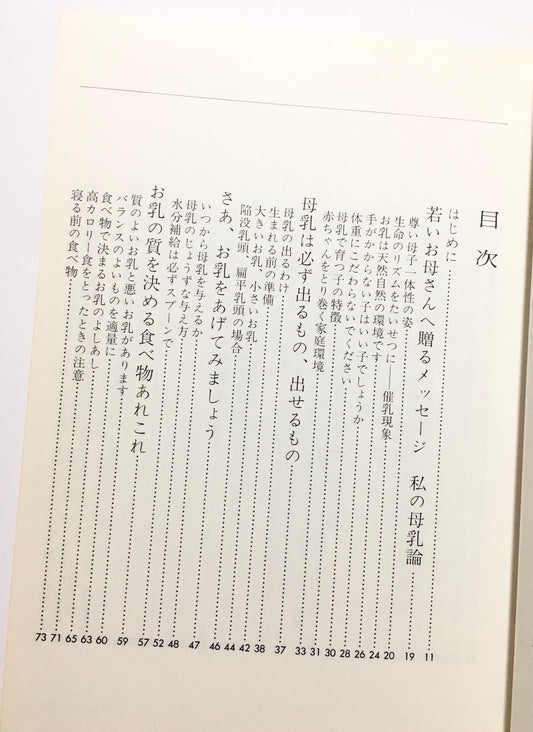 目次
はじめに 11
若いお母さんへ贈るメッセージ 私の母乳論 19
尊い母子一体性の姿 20
生命のリズムをたいせつに――催乳現象 24
お乳は天然自然の環境です 26
手がかからない子はいい子でしょうか 28
体重にこだわらないでください 30
母乳で育つ子の特徴 31
赤ちゃんをとり巻く家庭環境 33
母乳は必ず出るもの、出せるもの 37
母乳の出るわけ 38
生まれる前の準備 42
大きいお乳、小さいお乳 44
陥没乳頭、扁平乳頭の場合 46
さあ、お乳をあげてみましょう 47
いつから母乳を与えるか 48
母乳のじょうずな与え方 52
水分補給は必ずスプーンで 57
お乳の質を決める食べ物あれこれ 59
質のよいお乳と悪いお乳があります 60
バランスのよいものを適量に 63
食べ物で決まるお乳のよしあし 65
高カロリー食をとったときの注意 71
寝る前の食べ物 73